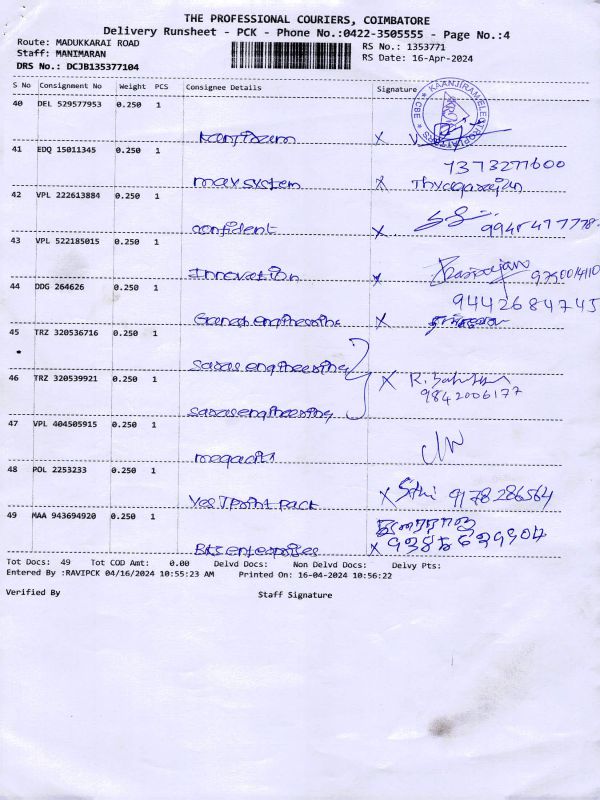 THE PROFESSIONAL COURIERS, COIMBATORE
Delivery Runsheet - PCK - Phone No.:0422-3505555 - Page No.:4
Route: MADUKKARAI ROAD
Staff: MANIMARAN
DRS No.: DCJB135377104
RS No.: 1353771
RS Date: 16-Apr-2024
S No Consignment No Weight PCS Consignee Details Signature
40 DEL 529577953 0.250 1
X
41 EDQ 15011345 0.250 1
7373277600
max system X Thyagarajan
42 VPL 222613884 0.250 1
confident X
43 VPL 522185015 0.250 1
Innovation X
44 DDG 264626 0.250 1
9442684745
Ganesh engineering X
45 TRZ 320536716 0.250 1
Saras engineering
46 TRZ 320539921 0.250 1
X R.
9842006177
Saras engineering
47 VPL 404505915 0.250 1
megacity
48 POL 2253233 0.250 1
Yes Point pack X 9178286564
49 MAA 943694920 0.250 1
enterprises X
Tot Docs: 49 Tot COD Amt: 0.00 Delvd Docs: Non Delvd Docs: Delvy Pts:
Entered By :RAVIPCK 04/16/2024 10:55:23 AM Printed On: 16-04-2024 10:56:22
Verified By Staff Signature